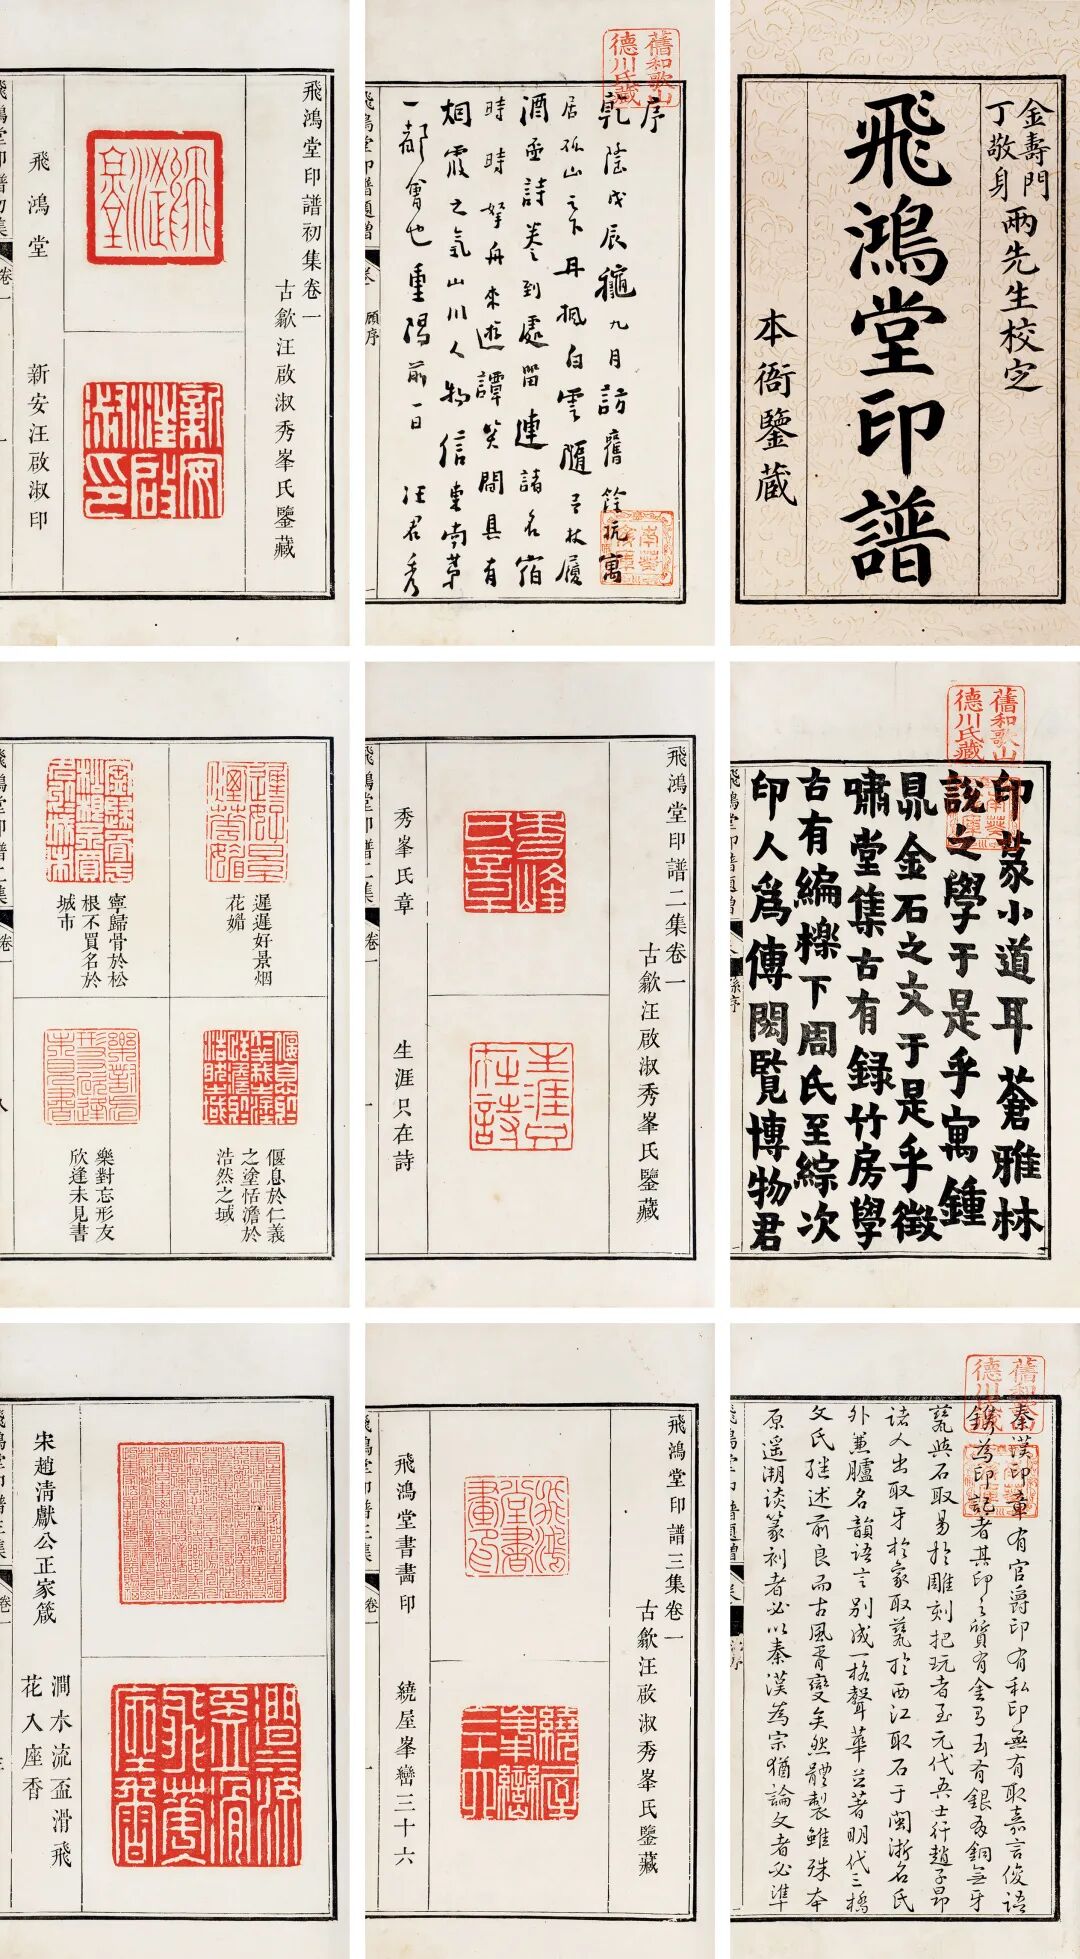 金壽門
丁敬身
兩先生校定
飛鴻堂印譜
本衙鑒藏
舊和歌山
德川氏藏
序
乾隆戊辰龝九月訪舊餘杭寓
居孤山之下丹楓白雲隨吾杖履
酒盃詩卷到處留連諸名宿
時時拏舟來遊譚笑間具有
烟霞之氣山川人物信東南第
一都會也重陽前一日汪君秀
飛鴻堂印譜題贈
卷
顧序
飛鴻堂印譜初集卷一
古歙汪啟淑秀峯氏鑒藏
飛鴻堂
新安汪啟淑印
飛鴻堂印譜初集
卷一
舊和歌山
德川氏藏
印篆小道耳蒼雅林
說之學于是乎寓鍾
鼎金石之文于是乎徵
嘯堂集古有録竹房學
古有編櫟下周氏至綜次
印人爲傳閎覽博物君
飛鴻堂印譜題贈
飛鴻堂印譜二集卷一
古歙汪啟淑秀峯氏鑒藏
秀峯氏章
生涯只在詩
飛鴻堂印譜二集
卷一
遲遲好景烟
花媚
寧歸骨於松
根不買名於
城市
偃息於仁義
之塗恬澹於
浩然之域
樂對忘形友
欣逢未見書
飛鴻堂印譜二集
卷一
八
舊和歌山
德川氏藏
秦漢印章有官爵印有私印無有取嘉言俊語
鐫為印記者其印之質有金有玉有銀有銅無牙
甆與石取易於雕刻把玩者至元代吾士行趙子昂
諸人出取牙於象取甆於西江取石于閩浙名氏
外兼臚名韻語言別成一格聲華並著明代三橋
文氏繼述前良而古風胥變矣然體製雖殊本
原遥溯談篆刻者必以秦漢為宗猶論文者必準
飛鴻堂印譜題贈
飛鴻堂印譜三集卷一
古歙汪啟淑秀峯氏鑒藏
飛鴻堂書畵印
繞屋峯巒三十六
飛鴻堂印譜三集
卷一
宋趙清獻公正家箴
澗水流盃滑飛
花入座香
飛鴻堂印譜三集
卷一